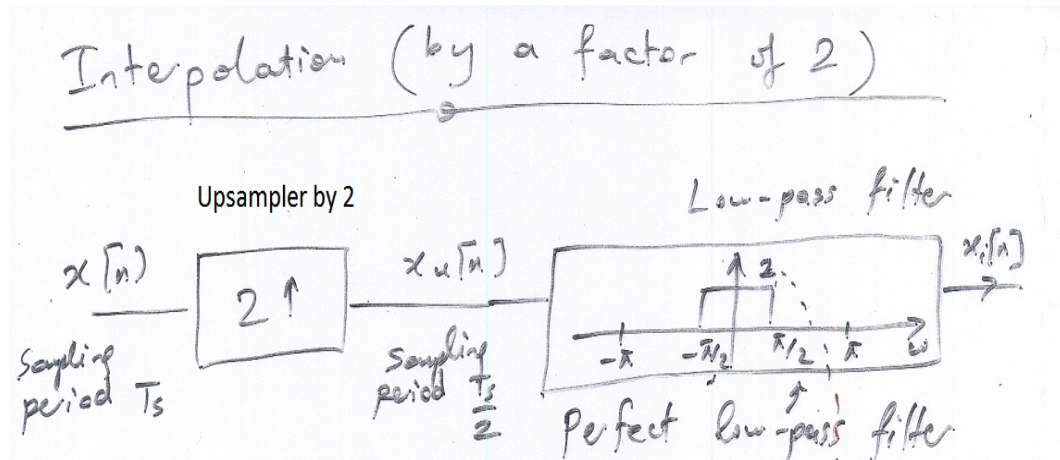 Interpolation (by a factor of 2)
Upsampler by 2
Low-pass filter
x[n]
2↑
xu[n]
xi[n]
2
-π -π/2 π/2 π ω
Sampling
period Ts
Sampling
period Ts/2
Perfect low-pass filter